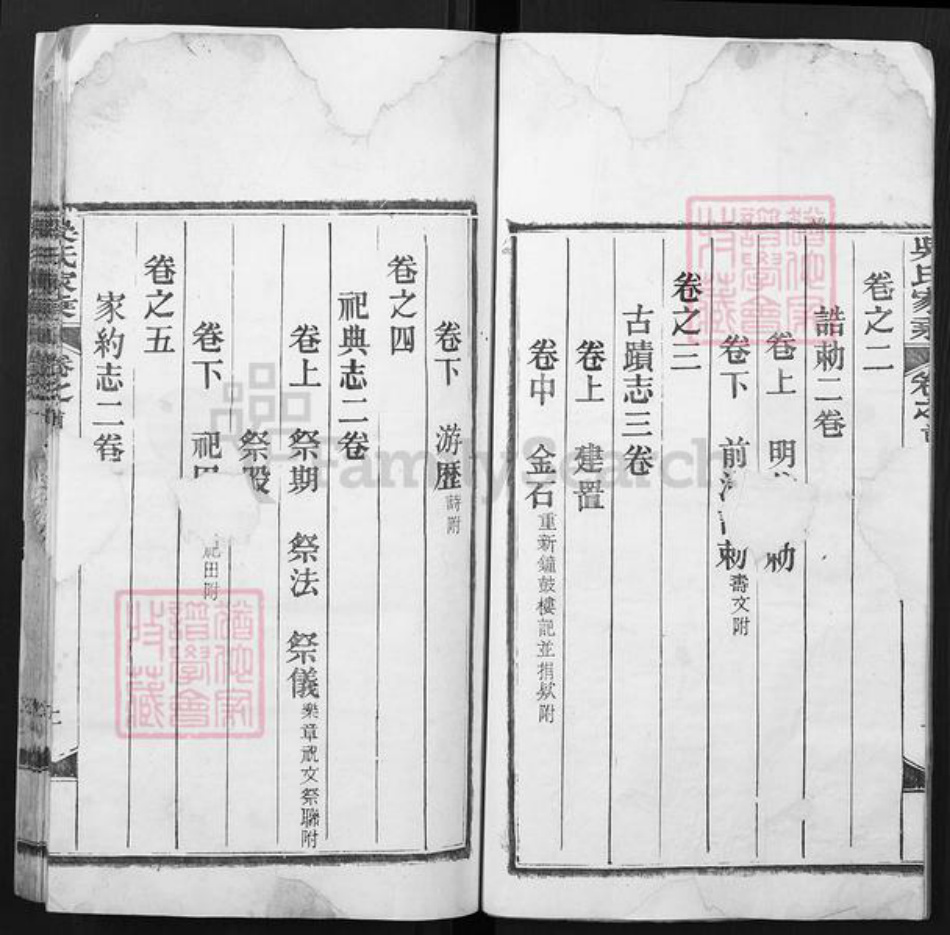 吳氏家乘
卷之二
誥勅二卷
卷上 明 勅
卷下 前 勅 壽文附
卷之三
古蹟志三卷
卷上 建置
卷中 金石 重新鐘鼓樓記並捐貲附
卷下 游歷 詩附
卷之四
祀典志二卷
卷上 祭期 祭法 祭儀 樂章祝文祭聯附
祭
卷下 祀 祀田附
卷之五
家約志二卷
吳氏家乘
FamilySearch